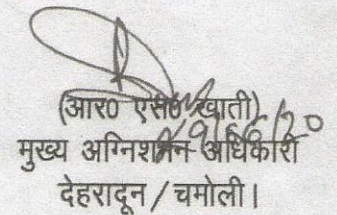 (आर0 एस0 खाती)
मुख्य अग्निशमन अधिकारी
देहरादून / चमोली।